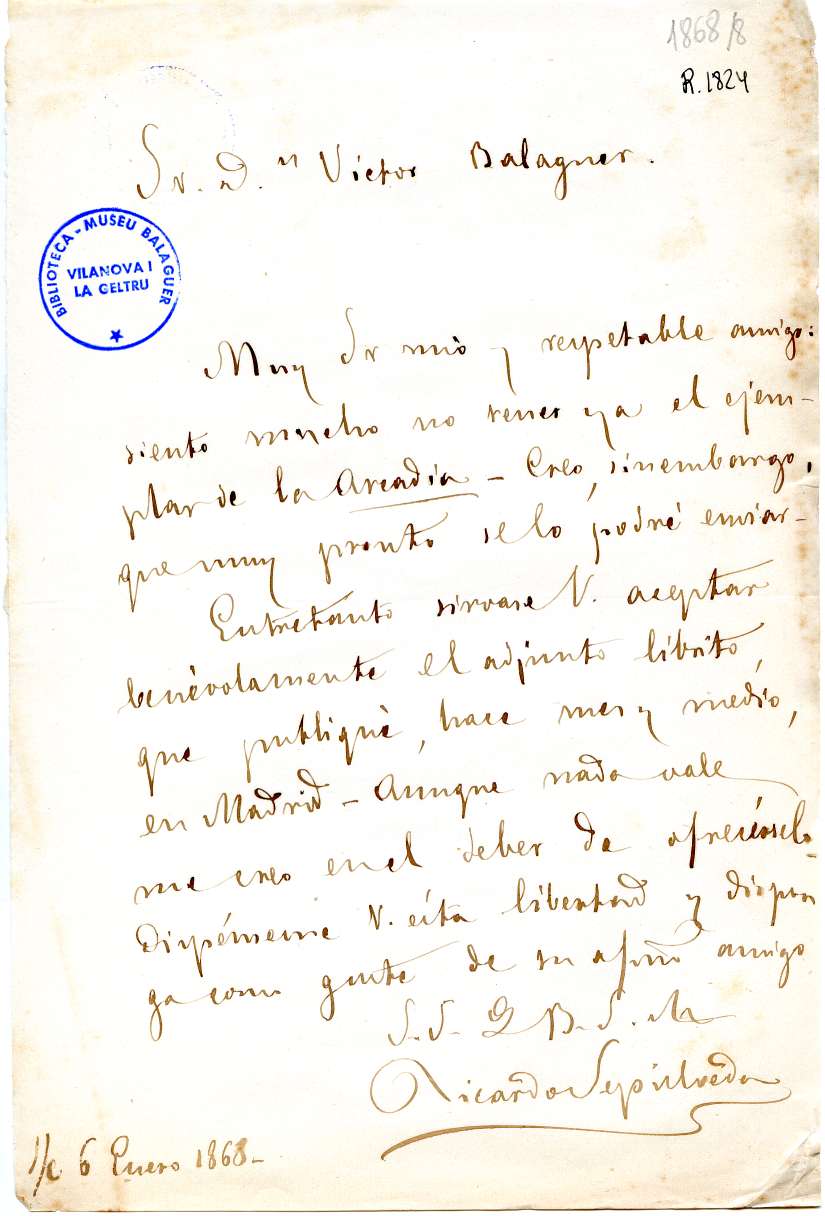 1868/8
R. 1824
Sr. D.ⁿ Victor Balaguer.
BIBLIOTECA - MUSEU BALAGUER
VILANOVA I
LA GELTRU
Muy Sr mio y respetable amigo:
siento mucho no tener ya el ejem-
plar de la Arcadia - Creo, sinembargo,
que muy pronto se lo podré enviar-
Entretanto sirvase V. aceptar
benèvolamente el adjunto librito,
que publiquè, hace mes y medio,
en Madrid - Aunque nada vale
me creo en el deber de ofrecérselo-
Dispénseme V. esta libertad y dispon
ga como guste de su afmo amigo
S. S. Q B. S. M
Ricardo Sepúlveda
S/c 6 Enero 1868-